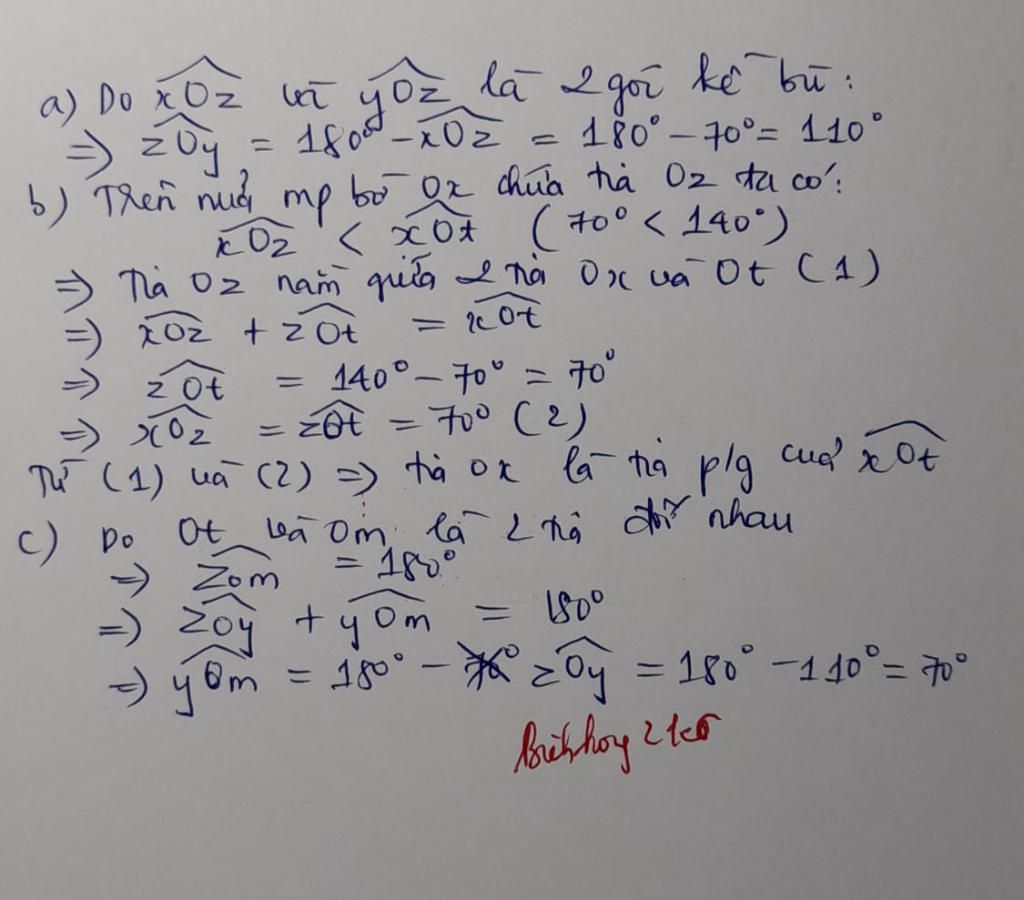 a) Do xOz và yOz là 2 góc kề bù:
=> zOy = 180° - xOz = 180° - 70° = 110°
b) Trên nửa mp bờ Ox chứa tia Oz ta có:
xOz < xOt (70° < 140°)
=> Tia Oz nằm giữa 2 tia Ox và Ot (1)
=> xOz + zOt = xOt
=> zOt = 140° - 70° = 70°
=> xOz = zOt = 70° (2)
Từ (1) và (2) => tia Ox là tia p/g của xOt
c) Do Ot và Om là 2 tia đối nhau
=> zOm = 180°
=> zOy + yOm = 180°
=> yOm = 180° - zOy = 180° - 110° = 70°